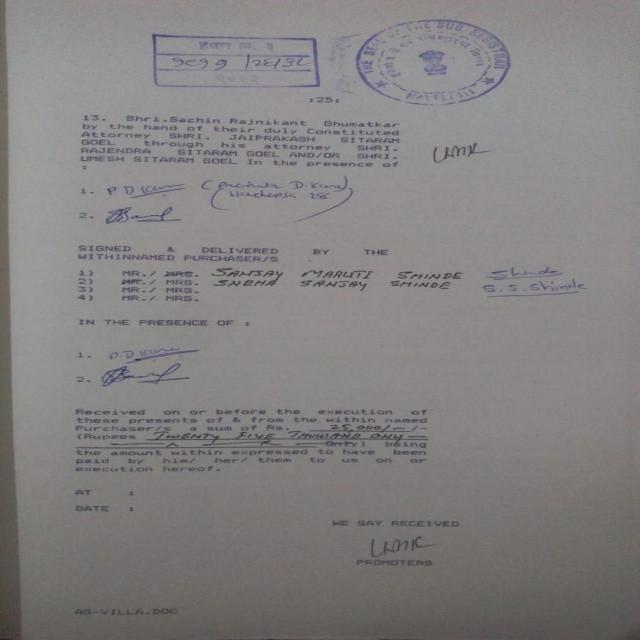 हवल क्र. १
१९११ /२६/३८
२००२
THE SEAL OF THE SUB-REGISTRAR
:25:
13. Shri.Sachin Rajnikant Ghumatkar
by the hand of their duly Constituted
Attorney SHRI. JAIPRAKASH SITARAM
GOEL through his attorney SHRI.
RAJENDRA SITARAM GOEL AND/OR SHRI.
UMESH SITARAM GOEL In the presence of
:
1. P D Kane
Hadapsar 28
2.
SIGNED & DELIVERED BY THE
WITHINNAMED PURCHASER/S
1) MR./ MRS. SANJAY MARUTI SHINDE Shinde
2) MR./ MRS. SNEHA SANJAY SHINDE S.S.Shinde
3) MR./ MRS.
4) MR./ MRS.
IN THE PRESENCE OF :
1. P.D.Kane
2.
Received on or before the execution of
these presents of & from the within named
Purchaser/s a sum of Rs. 25,000/- /-
(Rupees TWENTY FIVE THOUSAND ONLY
Only) being
the amount within expressed to have been
paid by him/ her/ them to us on or
execution hereof.
AT :
DATE :
WE SAY RECEIVED
PROMOTERS
AG-VILLA.DOC